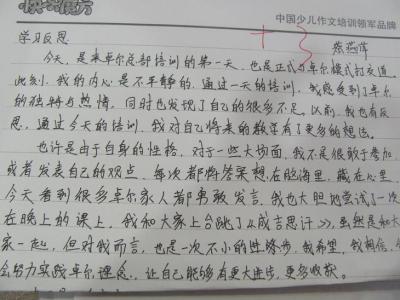 快乐魔方
中国少儿作文培训领军品牌
学习反思
蔡燕萍
今天,是来卓尔总部培训的第一天,也是正式与卓尔模式打交道。
此刻,我的内心是不平静的,通过一天的培训,我感受到了卓尔
的独特与热情,同时也发现了自己的很多不足。以前,我也有反
思,通过今天的培训,我对自己将来的教学有了更多的想法。
也许是由于自身的性格,对于一些大场面,我不是很敢于参加,
或者发表自己的观点,每次都将答案想在脑海里,藏在心里。
今天看到很多卓尔家人都勇敢发言,我也大胆地尝试了一次
在晚上的课上,我和大家上台跳了《成言思汗》,虽然是和大
家一起,但对我而言,也是一次不小的进步,我希望,我相信,我
会努力实践卓尔理念,让自己能够有更大进步,更多收获。